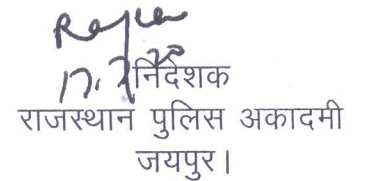 निदेशक
राजस्थान पुलिस अकादमी
जयपुर।